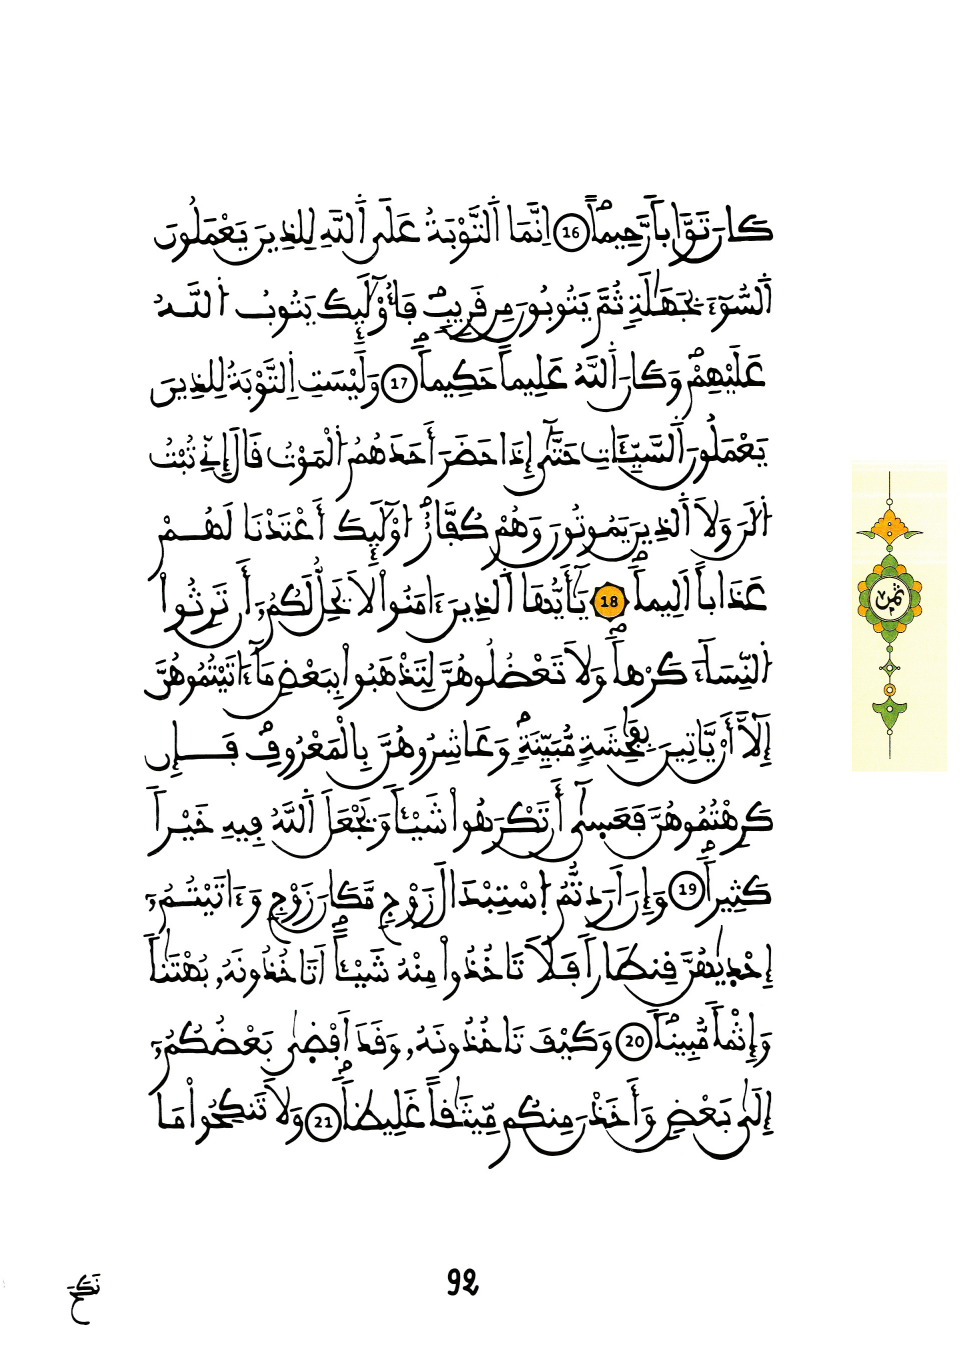 كَانَ تَوَّاباٗ رَّحِيماًۖ 16 اِنَّمَا اَ۬لتَّوْبَةُ عَلَى اَ۬للَّهِ لِلذِينَ يَعْمَلُونَ
اَ۬لسُّوٓءَ بِجَهَٰلَةٖ ثُمَّ يَتُوبُونَ مِن قَرِيبٖۖ فَأُوْلَٰٓئِكَ يَتُوبُ اُ۬للَّهُ
عَلَيْهِمْۖ وَكَانَ اَ۬للَّهُ عَلِيماً حَكِيماٗۖ 17 وَلَيْسَتِ اِ۬لتَّوْبَةُ لِلذِينَ
يَعْمَلُونَ اَ۬لسَّيِّـَٔاتِ حَتَّىٰٓ إِذَا حَضَرَ أَحَدَهُمُ اُ۬لْمَوْتُ قَالَ إِنِّے تُبْتُ
اُ۬لَٰنَ وَلَا اَ۬لذِينَ يَمُوتُونَ وَهُمْ كُفَّارٌۖ ا۟وْلَٰٓئِكَ أَعْتَدْنَا لَهُمْ
عَذَاباً اَلِيماٗۖ 18 يَٰٓأَيُّهَا اَ۬لذِينَ ءَامَنُواْ لَا يَحِلُّ لَكُمُۥٓ أَن تَرِثُواْ
اُ۬لنِّسَآءَ كَرْهاٗۖ وَلَا تَعْضُلُوهُنَّ لِتَذْهَبُواْ بِبَعْضِ مَآ ءَاتَيْتُمُوهُنَّ
إِلَّآ أَنْ يَّاتِينَ بِفَٰحِشَةٖ مُّبَيِّنَةٖۖ وَعَاشِرُوهُنَّ بِالْمَعْرُوفِۖ فَإِن
كَرِهْتُمُوهُنَّ فَعَسَىٰٓ أَن تَكْرَهُواْ شَيْـٔاٗ وَيَجْعَلَ اَ۬للَّهُ فِيهِ خَيْراٗ
كَثِيراٗۖ 19 وَإِنَ اَرَدتُّمُ اُ۪سْتِبْدَالَ زَوْجٖ مَّكَانَ زَوْجٖ وَءَاتَيْتُمُۥٓ
إِحْدَيٰهُنَّ قِنطَاراٗ فَلَا تَاخُذُواْ مِنْهُ شَيْـٔاًۖ اَتَاخُذُونَهُۥ بُهْتَٰناٗ
وَإِثْماٗ مُّبِيناٗۖ 20 وَكَيْفَ تَاخُذُونَهُۥ وَقَدَ اَفْضَىٰ بَعْضُكُمُۥٓ
إِلَىٰ بَعْضٖ وَأَخَذْنَ مِنكُم مِّيثَٰقاً غَلِيظاٗۖ 21 وَلَا تَنكِحُواْ مَا
ثمن
92
نَكَحَ